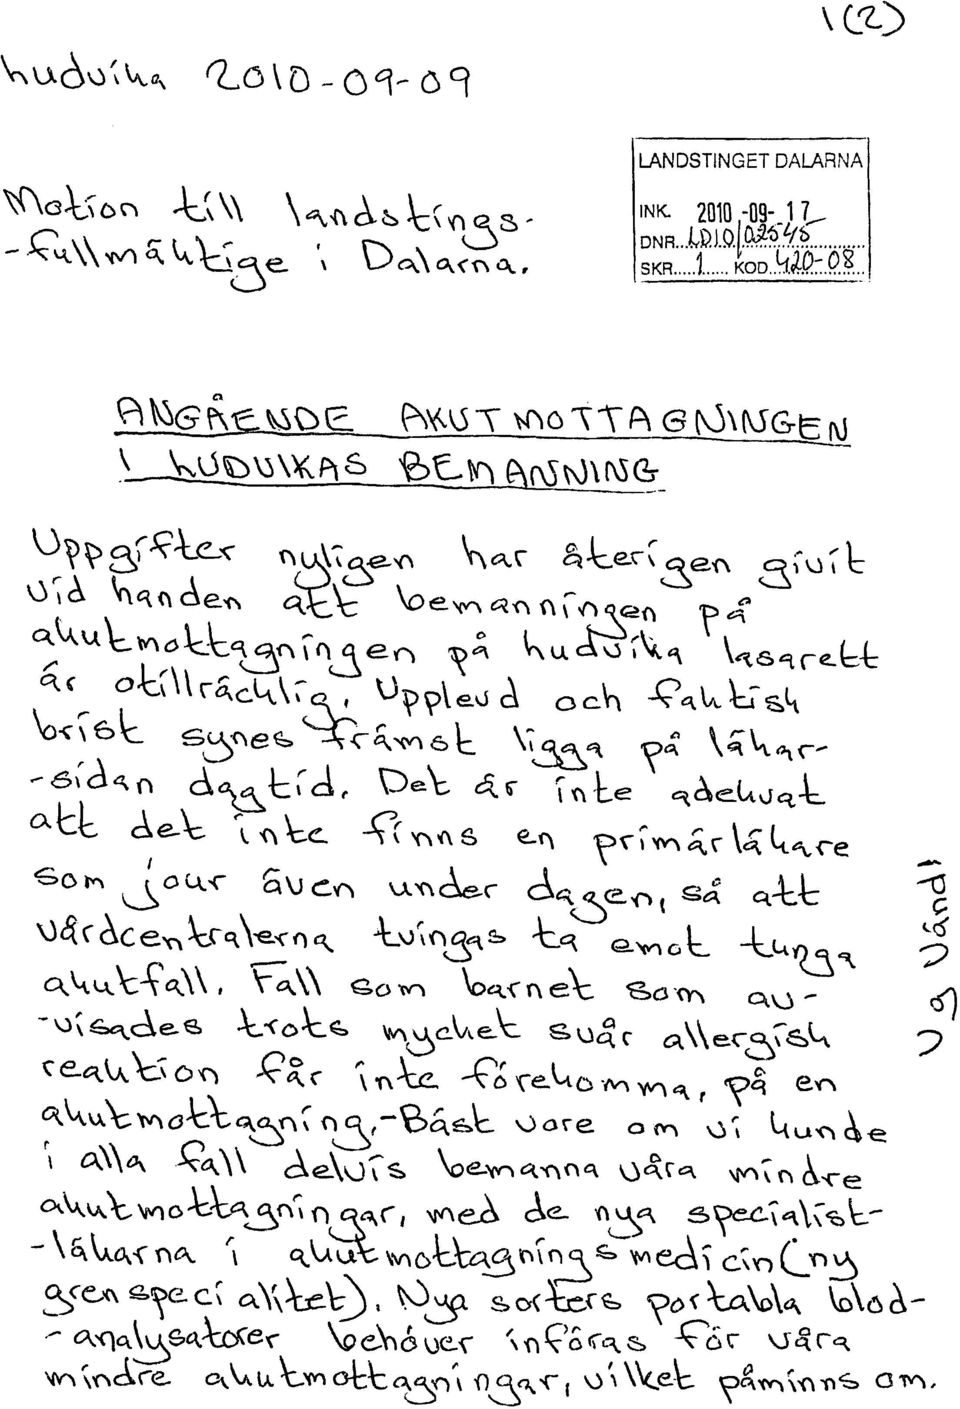 1(2)
Ludvika 2010-09-09
LANDSTINGET DALARNA
INK. 2010-09-17
DNR...LD10/02545
SKR.....1..... KOD..420-08
Motion till landstings-
-fullmäktige i Dalarna.
ANGÅENDE AKUTMOTTAGNINGEN
I LUDVIKAS BEMANNING
Uppgifter nyligen har återigen givit
vid handen att bemanningen på
akutmottagningen på Ludvika lasarett
är otillräcklig. Upplevd och faktisk
brist synes främst ligga på läkar-
-sidan dagtid. Det är inte adekvat
att det inte finns en primärläkare
som jour även under dagen, så att
vårdcentralerna tvingas ta emot tunga
akutfall. Fall som barnet som av-
-visades trots mycket svår allergisk
reaktion får inte förekomma, på en
akutmottagning.-Bäst vore om vi kunde
i alla fall delvis bemanna våra mindre
akutmottagningar, med de nya specialist-
-läkarna i akutmottagningsmedicin(ny
grenspecialitet). Nya sorters portabla blod-
-analysatorer behöver införas för våra
mindre akutmottagningar, vilket påminns om.
vänd!